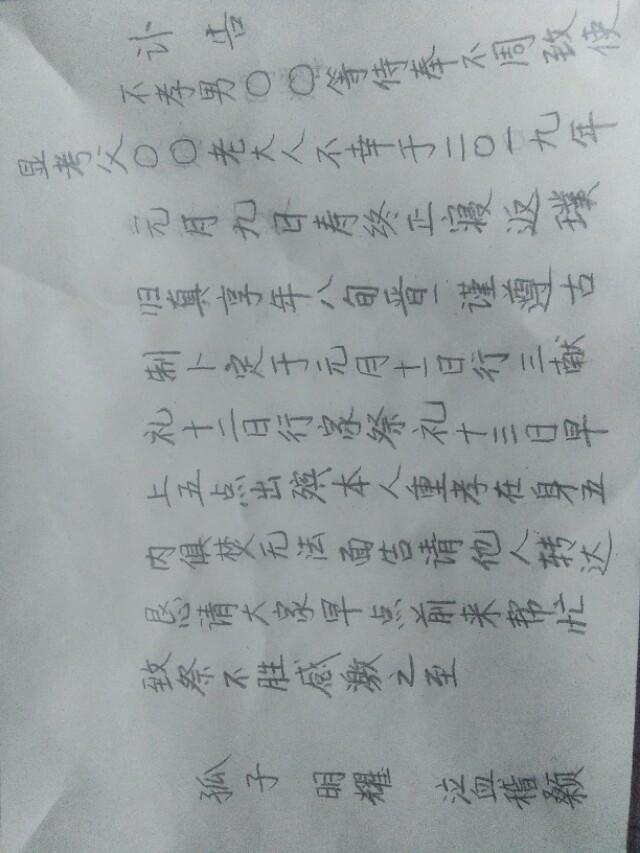 讣告
不孝男〇〇等侍奉不周致使
显考父〇〇老大人不幸于二〇一九年
元月九日寿终正寝返璞
归真享年八旬晋一谨遵古
制卜定于元月十一日行三献
礼十二日行家祭礼十三日早
上五点出殡本人重孝在身五
内俱焚无法面告请他人转达
恳请大家早点前来帮忙
致祭不胜感激之至
孤子 明耀 泣血稽颡